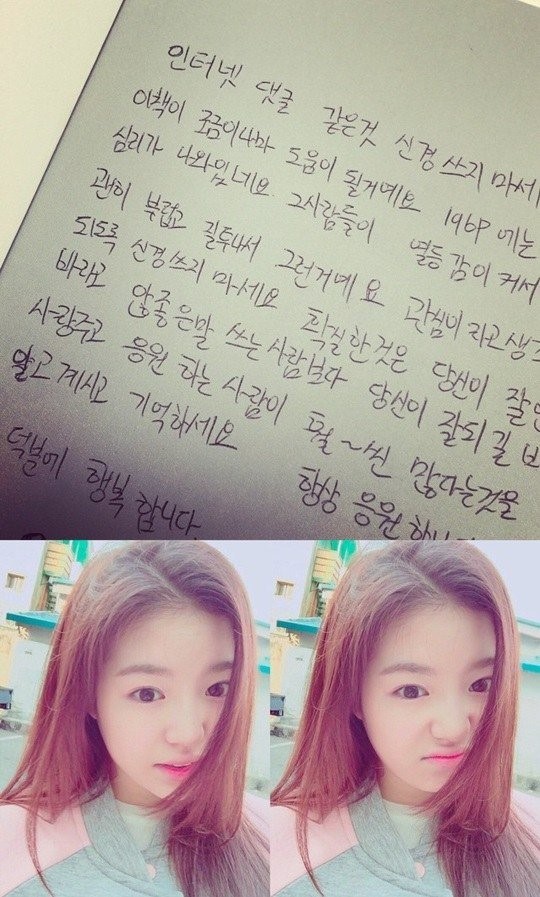 인터넷 댓글 같은것 신경 쓰지 마세
이책이 조금이나마 도움이 될거예요 196P 에는
심리가 나와있네요. 그사람들이 열등감이 커서
괜히 부럽고 질투나서 그런거예요 관심이자고 생
되도록 신경쓰지 마세요 확실한것은 당신이 잘안
바라고 않좋은말 쓰는사람보다 당신이 잘되길 바
사랑주고 응원 하는 사람이 훨~씬 많다는것을
알고계시고 기억하세요
덕분에 행복 합니다. 항상 응원 하